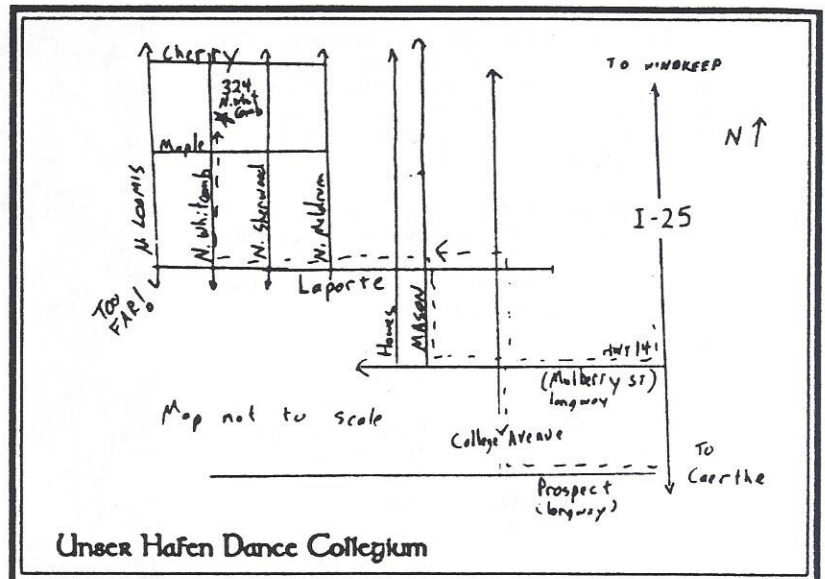 Cherry
TO WINDKEEP
324
N. Whit
comb
N ↑
Maple
N. LOOMIS
N. Whitcomb
N. Sherwood
N. Meldrum
I-25
Laporte
TOO
FAR!
Howes
MASON
HWY 14
(Mulberry ST)
longway
Map not to scale
College Avenue
TO
Caerthe
Prospect
(longway)
Unser Hafen Dance Collegium